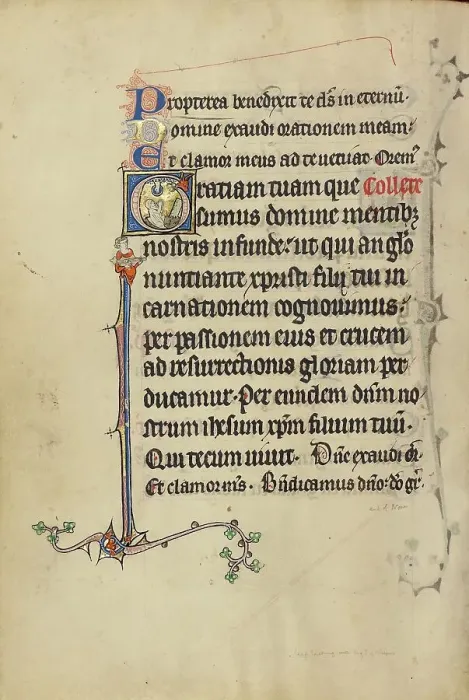 Propterea benedixit te ds in eternū.
Domine exaudi orationem meam.
Et clamor meus ad te ueniat. Orem9
Gratiam tuam que Collete
sumus domine mentibꝫ
nostris infunde: ut qui anglo
nuntiante xpristi filij tui in
carnationem cognouimus:
per passionem eius et crucem
ad resurrectionis gloriam per
ducamur. Per eundem dnm no
strum ihesum xpm filium tuū.
Qui tecum uiuit. Dne exaudi
Et clamor ms. Bndicamus dno. do gr.